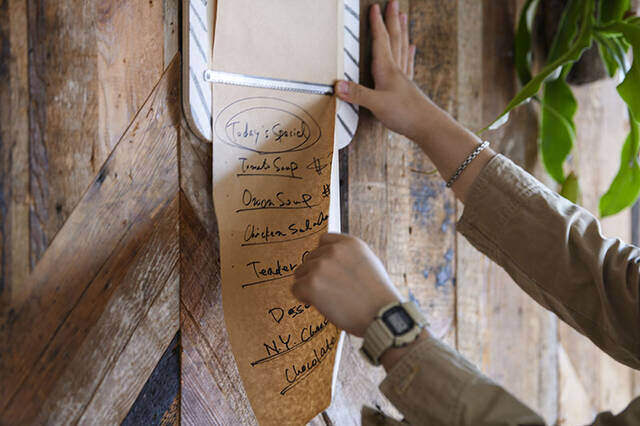 Today's Special
Tomato Soup $
Onion Soup $
Chicken Salad
Teader
Dess
N.Y. Chee
Chocolate